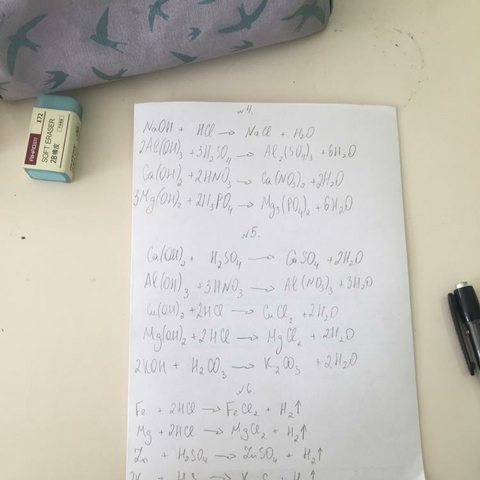 X72
SOFT ERASER
2B橡皮
№4.
NaOH + HCl → NaCl + H₂O
2Al(OH)₃ + 3H₂SO₄ → Al₂(SO₄)₃ + 6H₂O
Ca(OH)₂ + 2HNO₃ → Ca(NO₃)₂ + 2H₂O
3Mg(OH)₂ + 2H₃PO₄ → Mg₃(PO₄)₂ + 6H₂O
№5.
Ca(OH)₂ + H₂SO₄ → CaSO₄ + 2H₂O
Al(OH)₃ + 3HNO₃ → Al(NO₃)₃ + 3H₂O
Cu(OH)₂ + 2HCl → CuCl₂ + 2H₂O
Mg(OH)₂ + 2HCl → MgCl₂ + 2H₂O
2KOH + H₂CO₃ → K₂CO₃ + 2H₂O
№6.
Fe + 2HCl → FeCl₂ + H₂↑
Mg + 2HCl → MgCl₂ + H₂↑
Zn + H₂SO₄ → ZnSO₄ + H₂↑